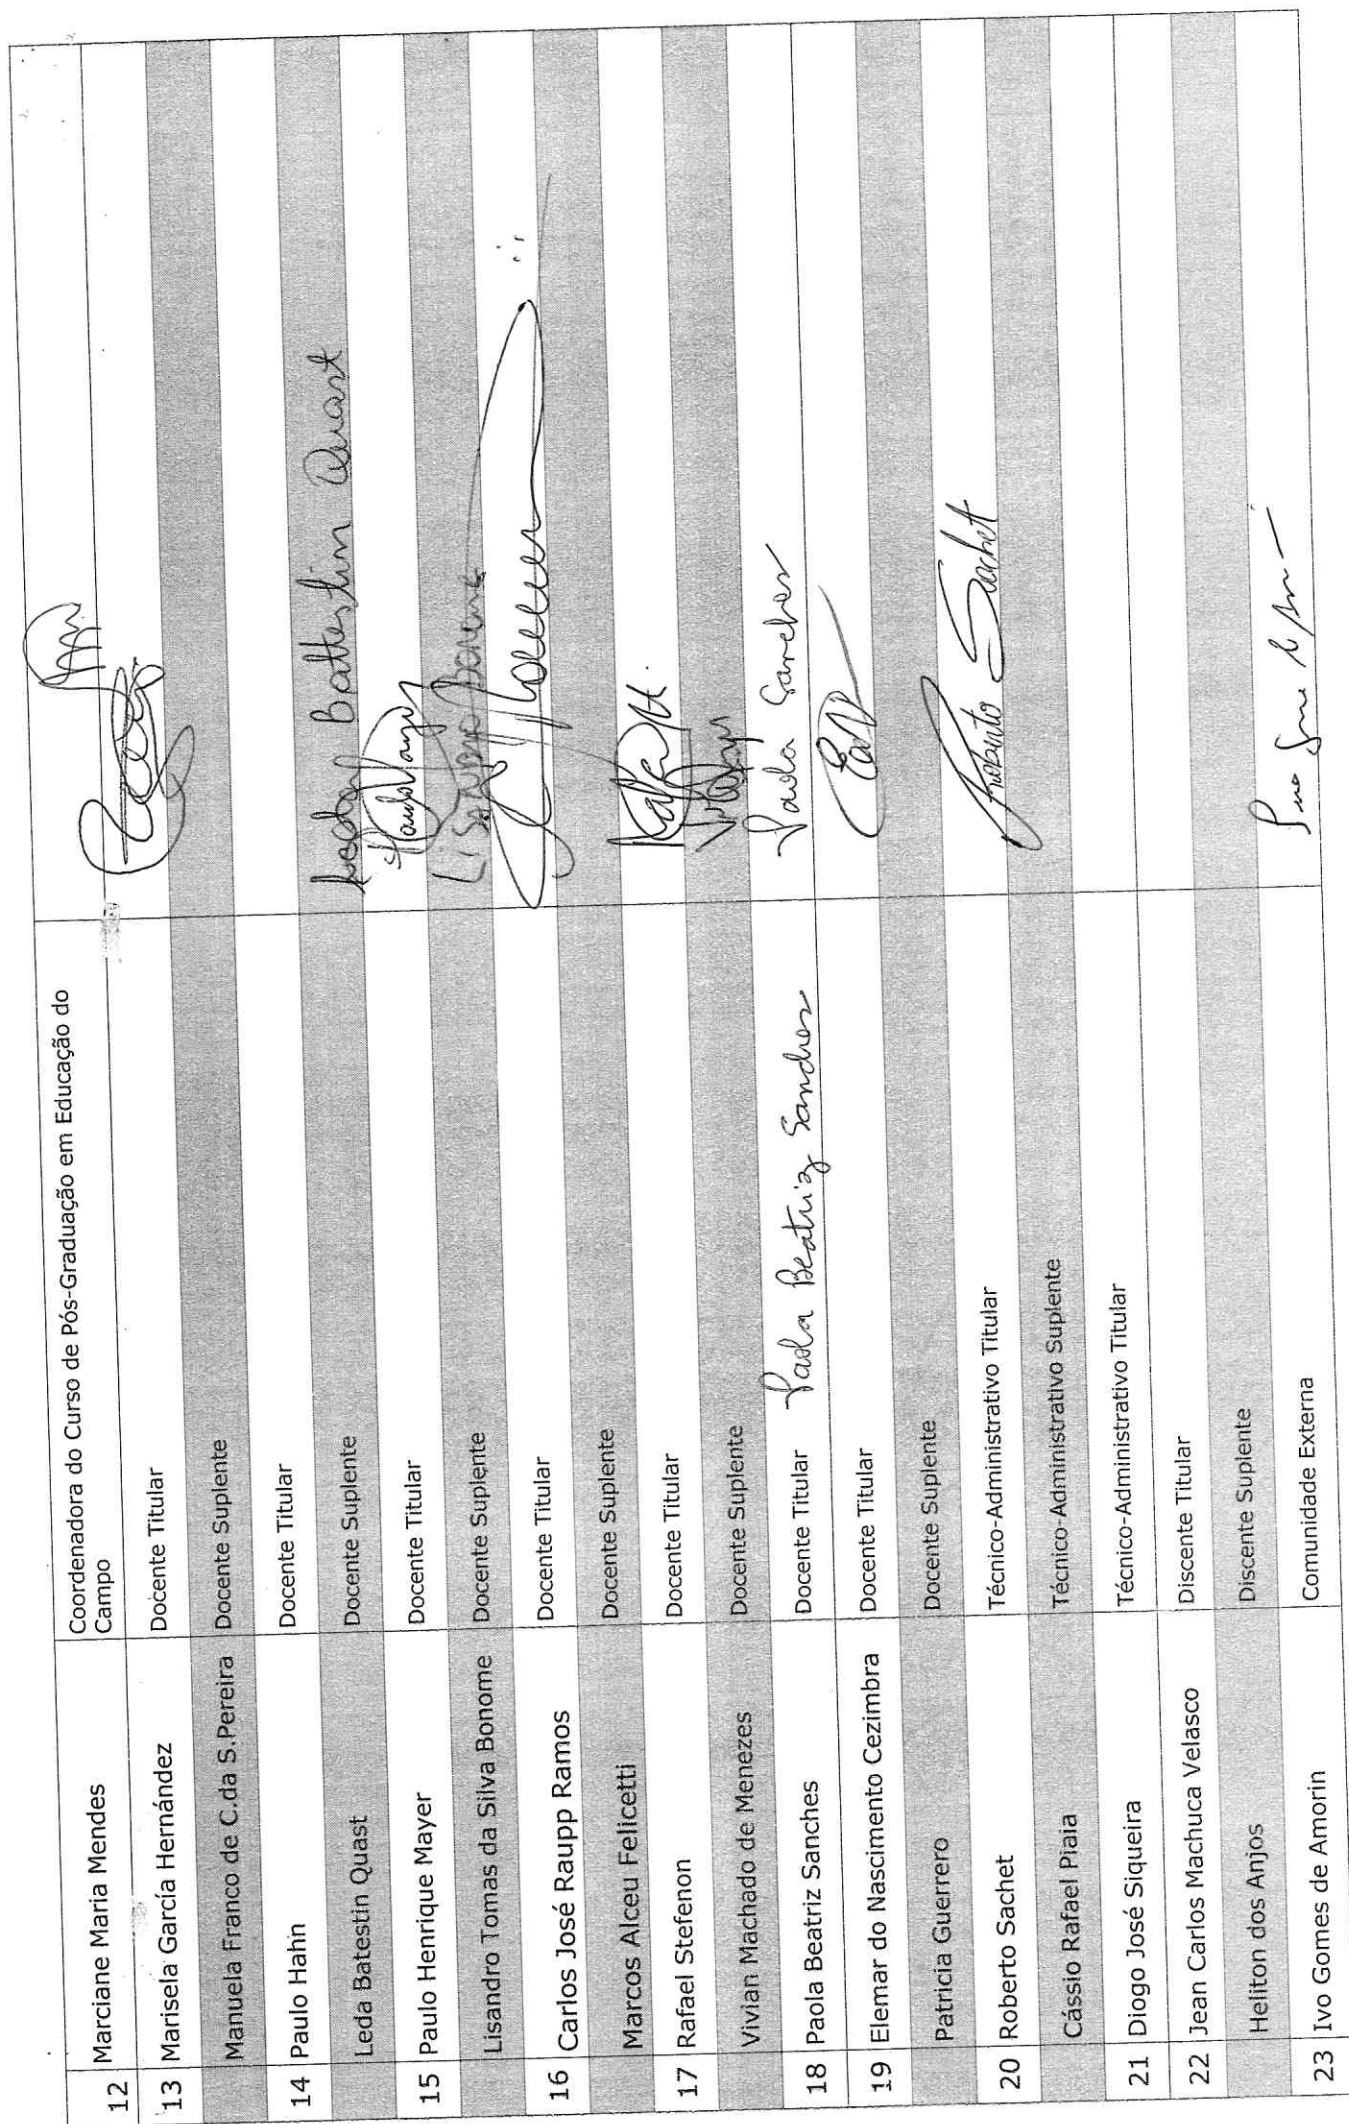 12 Marciane Maria Mendes Coordenadora do Curso de Pós-Graduação em Educação do
Campo
13 Marisela García Hernández Docente Titular
Manuela Franco de C.da S.Pereira Docente Suplente
14 Paulo Hahn Docente Titular
Leda Batestin Quast Docente Suplente Leda Battestin Quast
15 Paulo Henrique Mayer Docente Titular Paulo Mayer
Lisandro Tomas da Silva Bonome Docente Suplente Lisandro Bonome
16 Carlos José Raupp Ramos Docente Titular
Marcos Alceu Felicetti Docente Suplente
17 Rafael Stefenon Docente Titular
Vivian Machado de Menezes Docente Suplente
18 Paola Beatriz Sanches Docente Titular Paola Beatriz Sanches Paola Sanches
19 Elemar do Nascimento Cezimbra Docente Titular
Patricia Guerrero Docente Suplente
20 Roberto Sachet Técnico-Administrativo Titular Roberto Sachet
Cássio Rafael Piaia Técnico-Administrativo Suplente
21 Diogo José Siqueira Técnico-Administrativo Titular
22 Jean Carlos Machuca Velasco Discente Titular
Heliton dos Anjos Discente Suplente
23 Ivo Gomes de Amorin Comunidade Externa